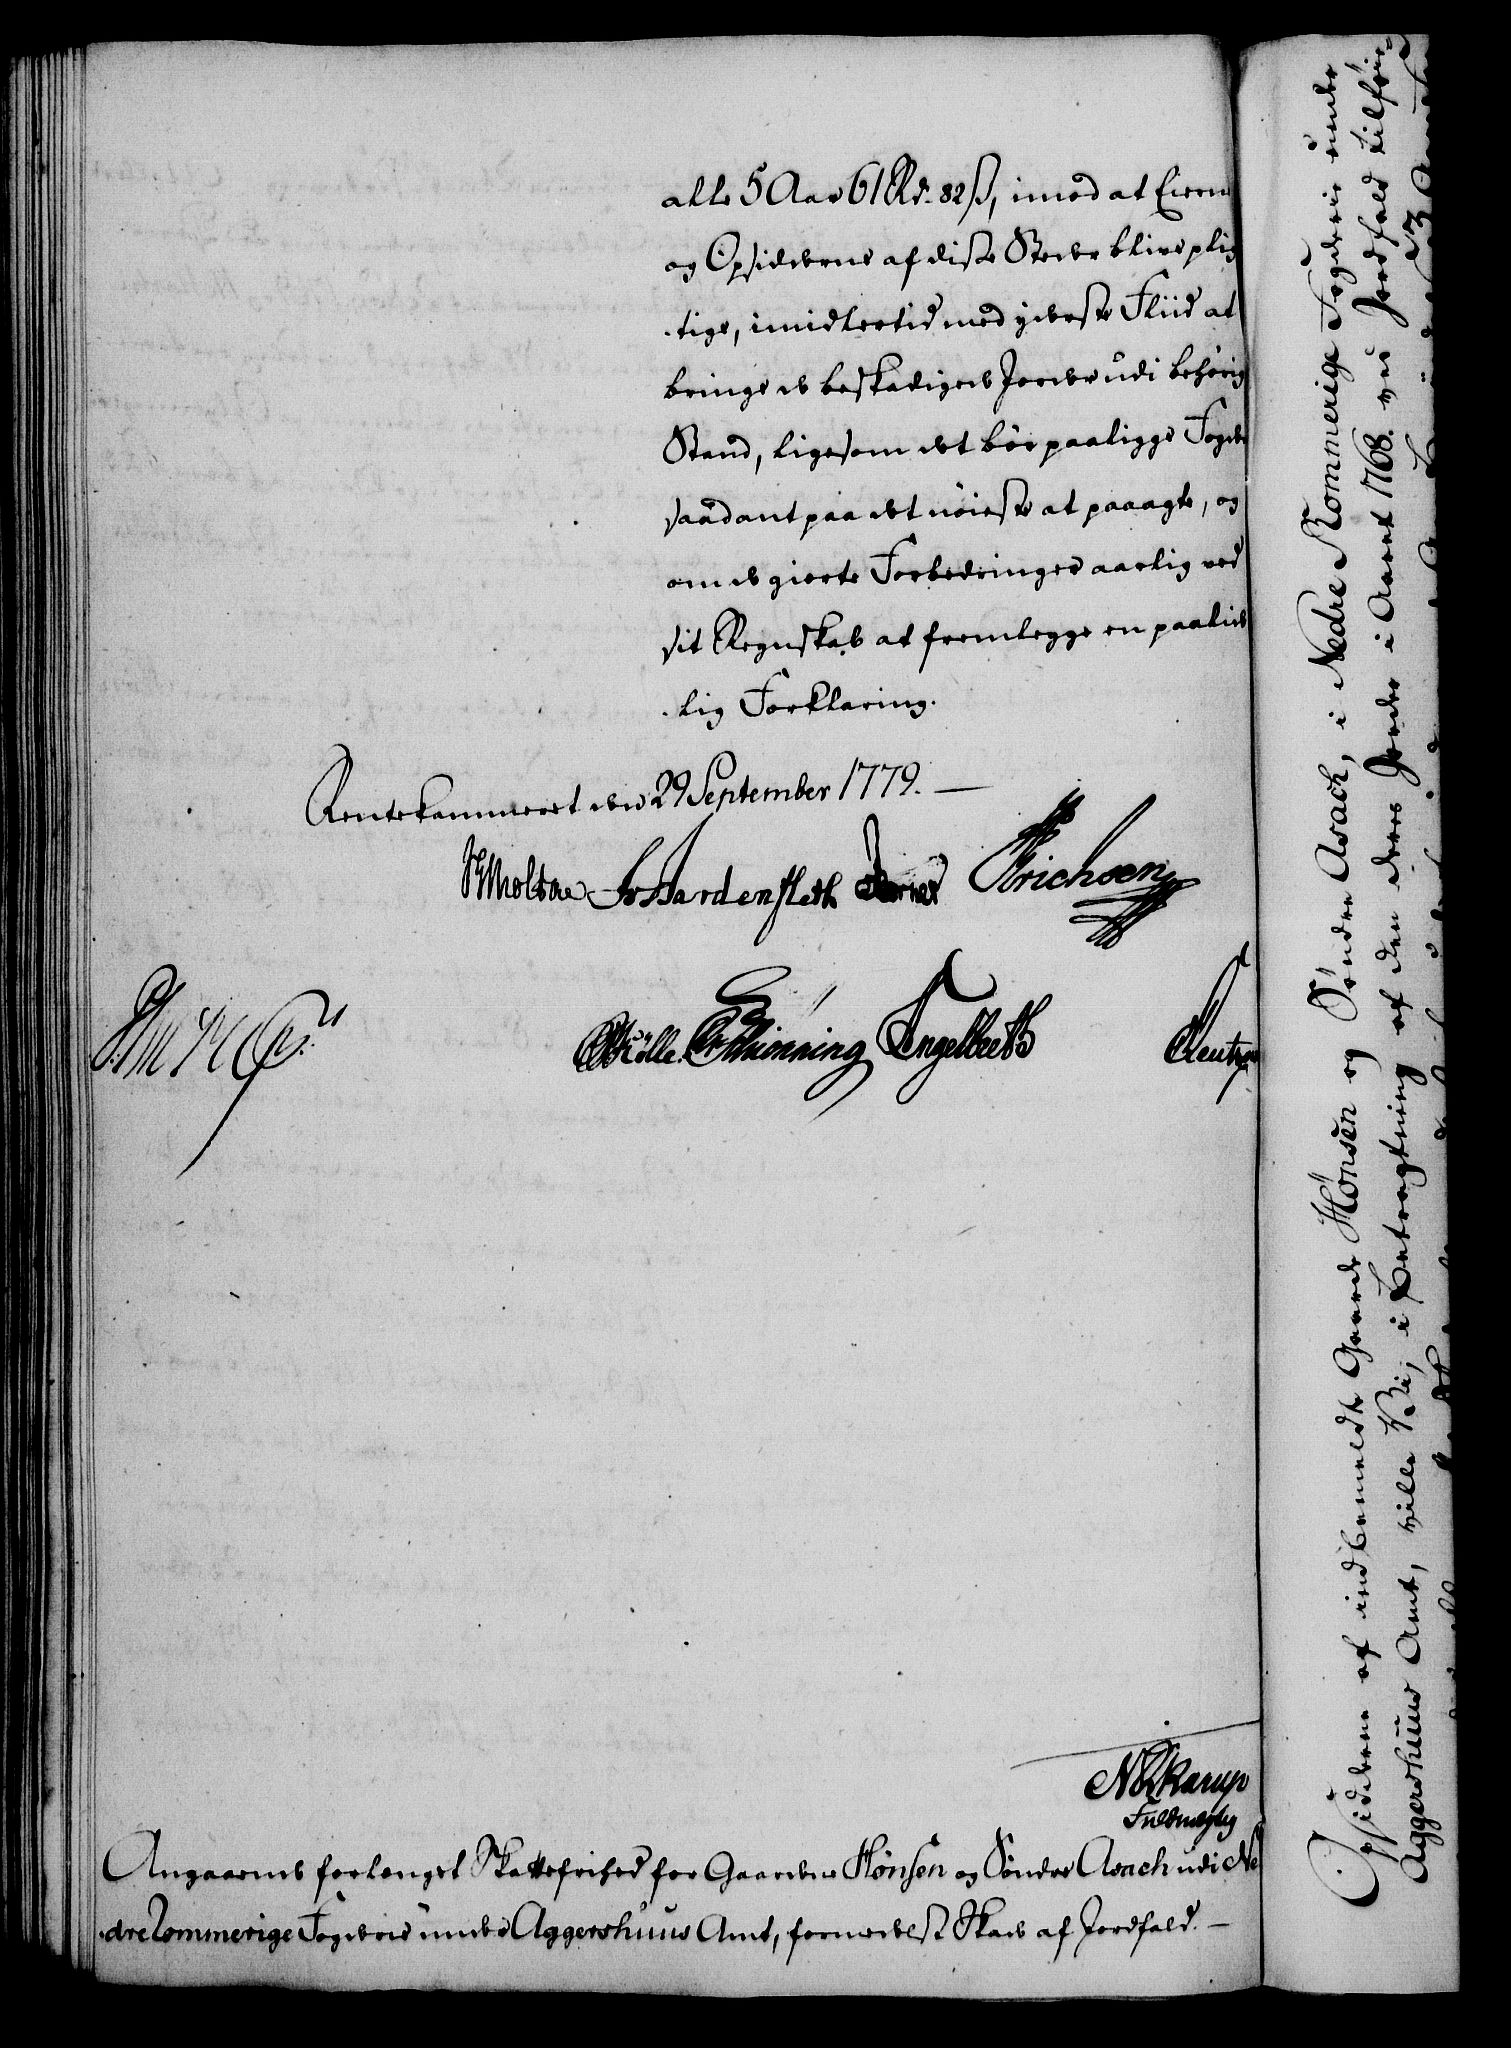 alle 5 Aar 61 Rd. 82 ß, imod at Eierne
og Opsidderne af disse Steder blive plig
tige, imidlertid med yderste Fliid at
bringe de beskadigede Jorder udi behørig
Stand, ligesom det bør paaligge Fogden
saadant paa det nøieste at paaagte, og
om de giorte Forbedringer aarlig ved
sit Regnskab at fremlegge en paalide
lig Forklaring.
Rentekammeret den 29 September 1779. —
Moltke Hardenfleth Erichsen
Mølle Engelbreth
Skarup
Fuldmegtig
Angaaende forlenget Skattefrihed for Gaardene Hønsen og Søndre Asach udi Ne
dre Rommerige Fogderie under Aggershuus Amt, formedelst Skade af Jordfald. —
Opsidderne af indbemeldte Gaarde Hønsen og Søndre Asach, i Nedre Rommerige Fogderie under
Aggershuus Amt, ville Vi, i Betragtning af den deres Jorder i Aaret 1768. ved Jordfald tilføie